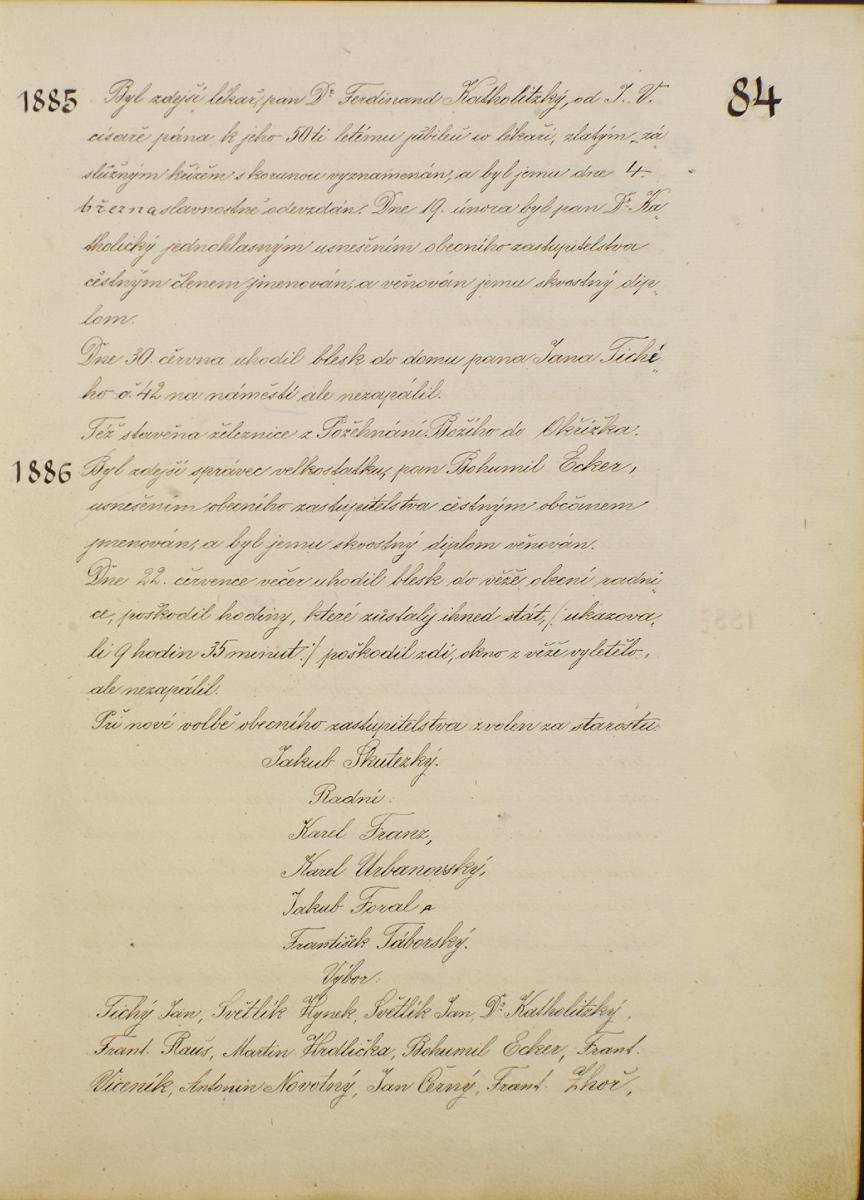 84
1885 Byl zdejší lékař, pan Dr Ferdinand Katholitzký, od J. V.
císaře pána k jeho 50ti letému jubileu co lékaři, zlatým zá„
služným křížem s korunou vyznamenán, a byl jemu dne 4.
března slavnostně odevzdán. Dne 19. února byl pan Dr Ka„
tholický jednohlasným usnešením obecního zastupitelstva
čestným členem jmenován, a věnován jemu skvostný dip„
lom.
Dne 30. června uhodil blesk do domu pana Jana Tiché„
ho č. 42 na náměstí ale nezapálil.
Též stavěna železnice z Požehnání Božího do Okřížka.
1886 Byl zdejší správec velkostatku, pan Bohumil Ecker,
usnešením obecního zastupitelstva čestným občanem
jmenován, a byl jemu skvostný diplom věnován.
Dne 22. července večer uhodil blesk do věže obecní radni„
ce, poškodil hodiny, které zůstaly ihned stát, /: ukazova„
li 9 hodin 35 minut :/ poškodil zdi, okno z věže vyletělo,
ale nezapálil.
Při nové volbě obecního zastupitelstva zvolen za starostu:
Jakub Skutezký.
Radní:
Karel Franz,
Karel Urbanovský,
Jakub Foral a
František Táborský.
Výbor:
Tichý Jan, Světlík Hynek, Světlík Jan, Dr Katholitzký,
Frant. Rauš, Martin Hrdlička, Bohumil Ecker, Frant.
Viceník, Antonin Novotný, Jan Černý, Frant. Zhoř,